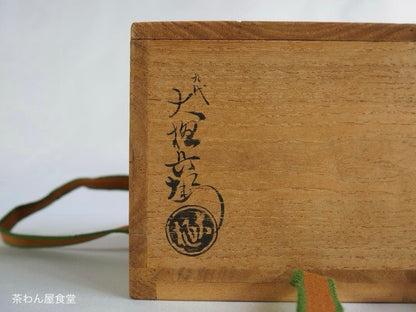 九代
大樋長左衛門
茶わん屋食堂